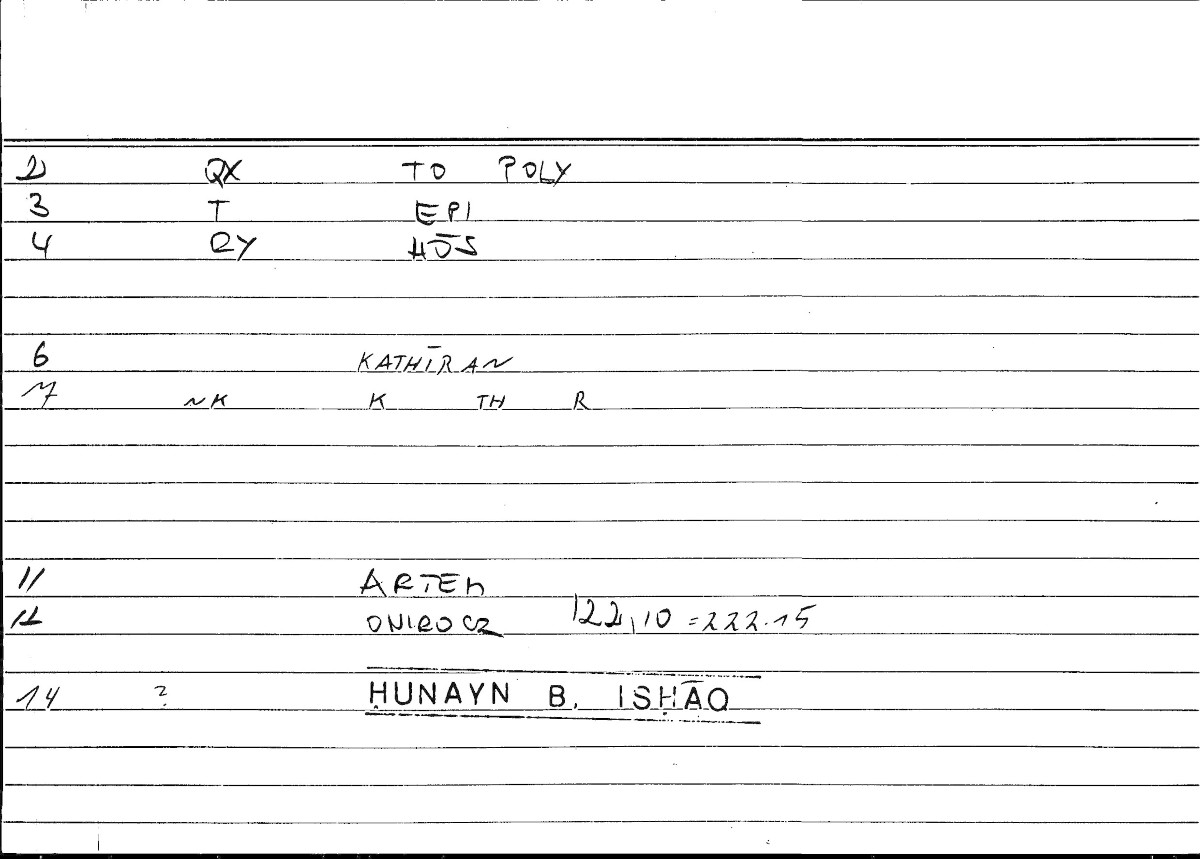 2 QX TO POLY
3 T EPI
4 RY HŌS
6 KATHĪRAN
7 NK K TH R
11 ARTEM
12 ONIROCR 122,10 = 222.15
14 ? ḤUNAYN B. ISḤĀQ